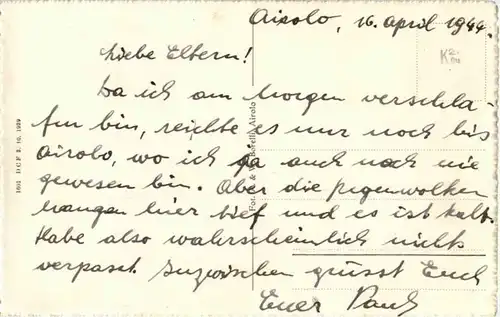 Airolo, 16. April 1944.
Liebe Eltern!
Da ich am Morgen verschla-
fen bin, reichte es nur noch bis
Airolo, wo ich ja auch noch nie
gewesen bin. Aber die Regenwolken
hangen hier tief und es ist kalt.
Habe also wahrscheinlich nichts
verpasst. Inzwischen grüsst Euch
Euer Paul
1802 DCF 2. 10. 1939
Borelli, Airolo